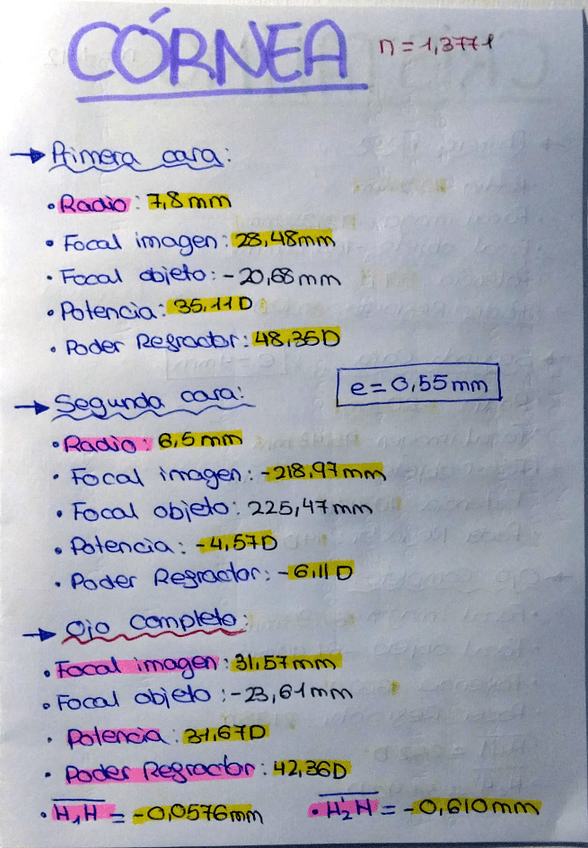 CÓRNEA n = 1,3771
→ Primera cara:
• Radio: 7,8 mm
• Focal imagen: 28,48mm
• Focal objeto: -20,68 mm
• Potencia: 35,11 D
• Poder Refractor: 48,35D
e = 0,55 mm
→ Segunda cara:
• Radio: 6,5 mm
• Focal imagen: -218,97 mm
• Focal objeto: 225,47 mm
• Potencia: -4,57D
• Poder Refractor: -6,11 D
→ Ojo completo:
• Focal imagen: 31,57mm
• Focal objeto: -23,61 mm
• Potencia: 31,67D
• Poder Refractor: 42,36D
• H₁H = -0,0576mm • H₂H = -0,610 mm